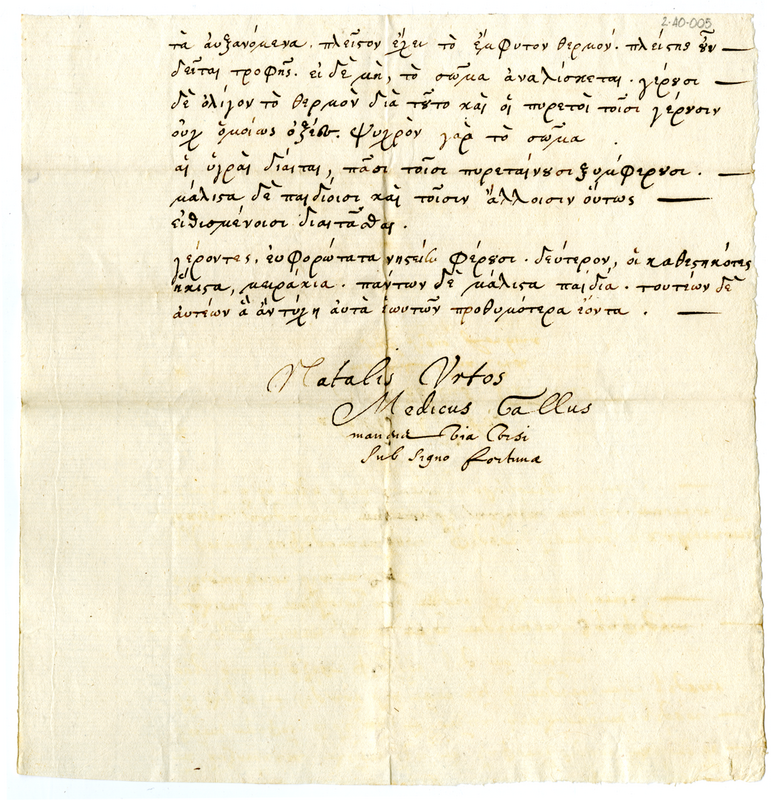 2-A0-005
τὰ αὐξανόμενα. πλεῖϛον ἔχει τὸ ἔμφυτον θερμόν. πλείϛης ȣ̓͂ν
δεῖται τροφῆς. εἰ δὲ μὴ, τὸ σῶμα ἀναλίσκεται. γέρȣσι
δὲ ὀλίγον τὸ θερμὸν διὰ τȣ͂το καὶ οἱ πυρετοὶ τοῖσι γέρȣσιν
οὐχ ὁμοίως ὀξέες. ψυχρὸν γὰρ τὸ σῶμα.
αἱ ὑγραὶ δίαιται, πᾶσι τοῖσι πυρεταίνȣσι ξυμφέρȣσι.
μάλιϛα δὲ παιδίοισι καὶ τοῖσιν ἄλλοισιν οὕτως
εἰθισμένοισι διαιτᾶσθαι.
γέροντες, εὐφορώτατα νηϛείην φέρȣσι. δεύτερον, οἱ καθεϛηκότες
ἥκιϛα, μειράκια. πάντων δὲ μάλιϛα παιδία. τουτέων δὲ
αὐτέων ἃ ἂν τύχῃ αὐτὰ ἑωυτῶν προθυμότερα ἐόντα.
Natalis Vrtos
Medicus Gallus
sub signo fortunæ